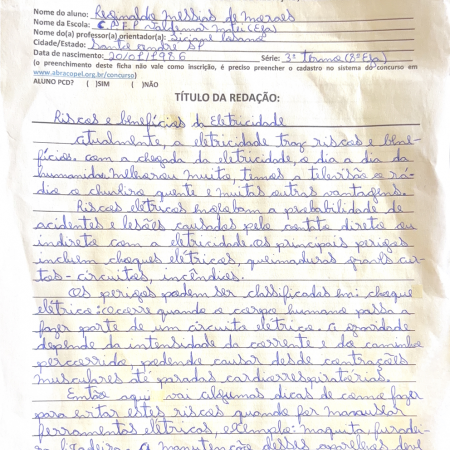 Nome do aluno: Reginaldo Messias de moraes
Nome da Escola: C.P.F.P Valdemar Matei (Eja)
Nome do(a) professor(a) orientador(a):
Cidade/Estado: Santo andre SP
Data de nascimento: 20/08/1986 Série: 3º termo (8ºEja)
(o preenchimento desta ficha não vale como inscrição, é preciso preencher o cadastro no sistema do concurso em
www.abracopel.org.br/concurso)
ALUNO PCD? ( )SIM ( )NÃO
TÍTULO DA REDAÇÃO:
Riscos e benefícios da Eletricidade
Atualmente, a eletricidade traz riscos e bene-
fícios. com a chegada da eletricidade, o dia a dia da
humanidade melhorou muito, temos a televisão o rá-
dio o chuveiro quente e muitas outras vantagens.
Riscos elétricos englobam a probabilidade de
acidentes e lesões causadas pelo contato direto ou
indireto com a eletricidade. Os principais perigos
incluem choques elétricos, queimaduras graves cur-
tos - circuitos, incêndios.
Os perigos podem ser classificadas em: choque
elétrico: ocorre quando o corpo humano passa a
fazer parte de um circuito elétrico. a gravidade
depende da intensidade da corrente e do caminho
percorrido podendo causar desde contrações
musculares até paradas cardiorrespiratórias.
Então aqui vai algumas dicas de como fazer
para evitar estes riscos quando for manusear
ferramentas elétricas, exemplo: maquita, furadei-
ra lixadeira. A manutenção desses aparelhos deve